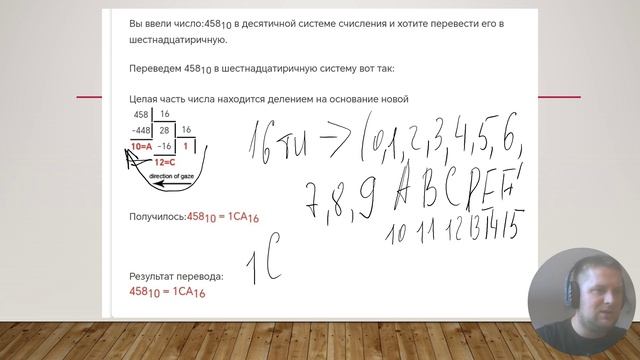 Вы ввели число:458₁₀ в десятичной системе счисления и хотите перевести его в
шестнадцатиричную.
Переведем 458₁₀ в шестнадцатиричную систему вот так:
Целая часть числа находится делением на основание новой
458 16
-448 28 16
10=A -16 1
12=C
direction of gaze
16 ти -> (0,1,2,3,4,5,6,
7,8,9 A B C D E F
10 11 12 13 14 15
Получилось:458₁₀ = 1CA₁₆
1C
Результат перевода:
458₁₀ = 1CA₁₆